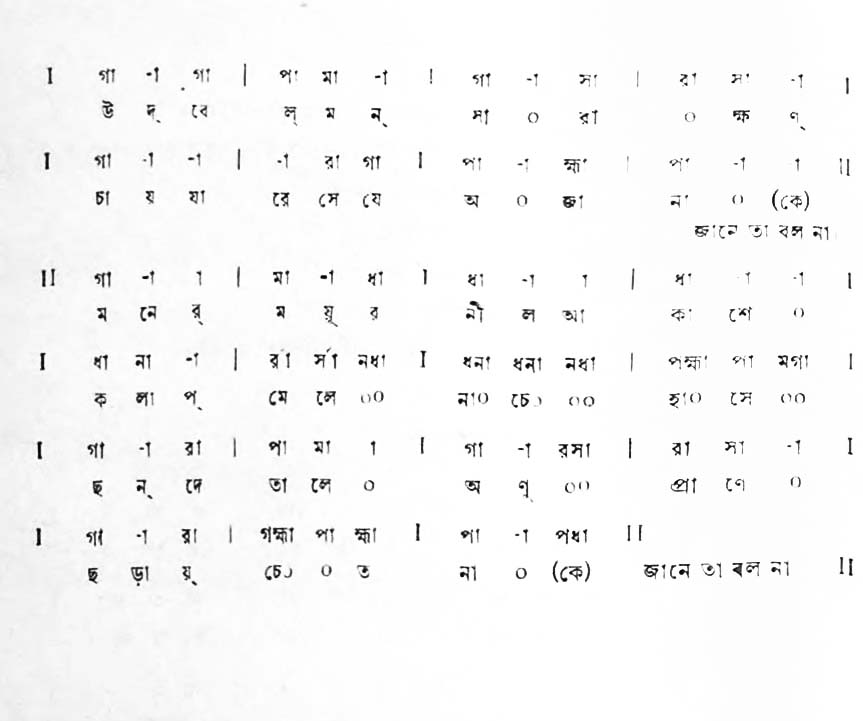 I গা -া গা | পা মা -া I গা -া সা | রা সা -া I
উ দ্ বে ল্ ম ন্ সা ০ রা ০ ক্ষ ণ্
I গা -া -া | -া রা গা I পা -া হ্মা | পা -া -া II
চা য় যা রে সে যে অ ০ জা না ০ (কে)
জানে তা বল না
II গা -া া | মা -া ধা I ধা -া া | ধা -া -া I
ম নে র্ ম য়ূ র নী ল আ কা শে ০
I ধা না -া | র্রা র্সা নধা I ধনা ধনা নধা | পহ্মা পা মগা I
ক লা প্ মে লে ০০ না০ চে০ ০০ হা০ সে ০০
I গা -া রা | পা মা া I গা -া রসা | রা সা -া I
ছ ন্ দে তা লে ০ অ ণূ ০০ প্রা ণে ০
I গা -া রা | গহ্মা পা হ্মা I পা -া পধা II
ছ ড়া য়্ চে০ ০ ত না ০ (কে) জানে তা বল না II